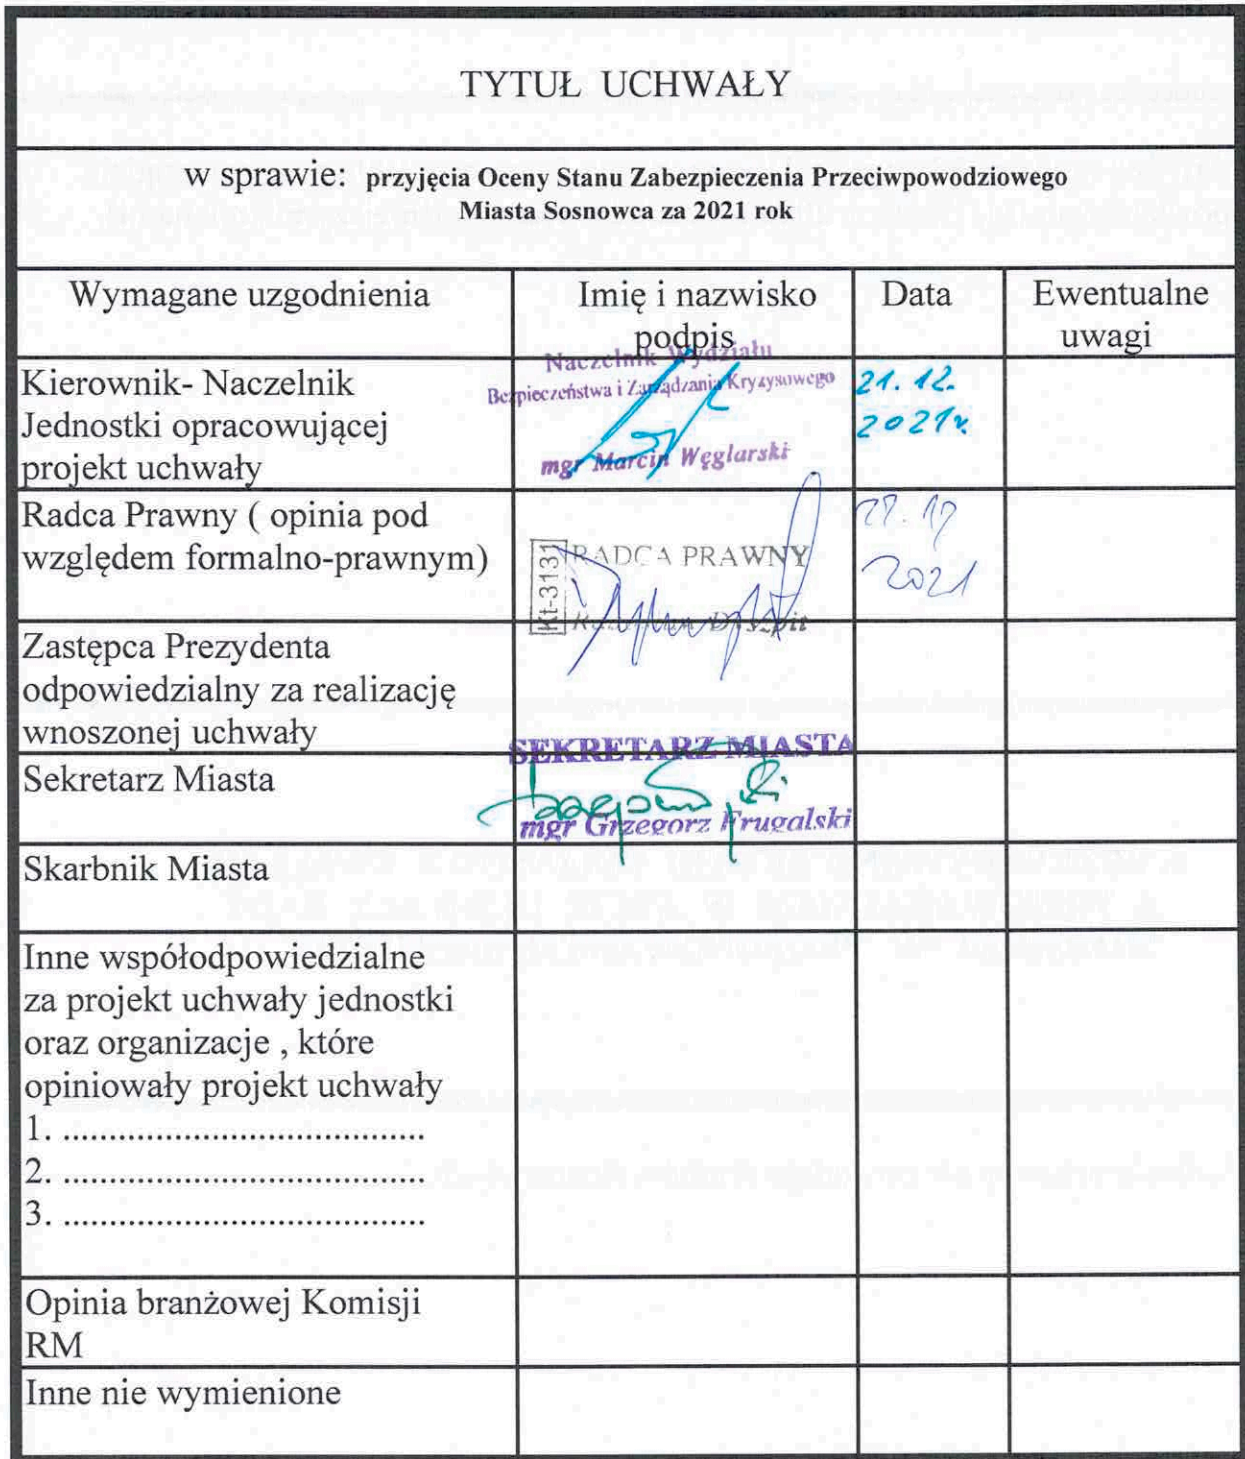 TYTUŁ UCHWAŁY
w sprawie: przyjęcia Oceny Stanu Zabezpieczenia Przeciwpowodziowego
Miasta Sosnowca za 2021 rok
Wymagane uzgodnienia
Imię i nazwisko
podpis
Data
Ewentualne
uwagi
Kierownik- Naczelnik
Jednostki opracowującej
projekt uchwały
Naczelnik Wydziału
Bezpieczeństwa i Zarządzania Kryzysowego
mgr Marcin Węglarski
21.12.
2021r.
Radca Prawny ( opinia pod
względem formalno-prawnym)
Kt-3131
RADCA PRAWNY
2021
Zastępca Prezydenta
odpowiedzialny za realizację
wnoszonej uchwały
Sekretarz Miasta
SEKRETARZ MIASTA
mgr Grzegorz Frugalski
Skarbnik Miasta
Inne współodpowiedzialne
za projekt uchwały jednostki
oraz organizacje , które
opiniowały projekt uchwały
1. .......................................
2. .......................................
3. .......................................
Opinia branżowej Komisji
RM
Inne nie wymienione